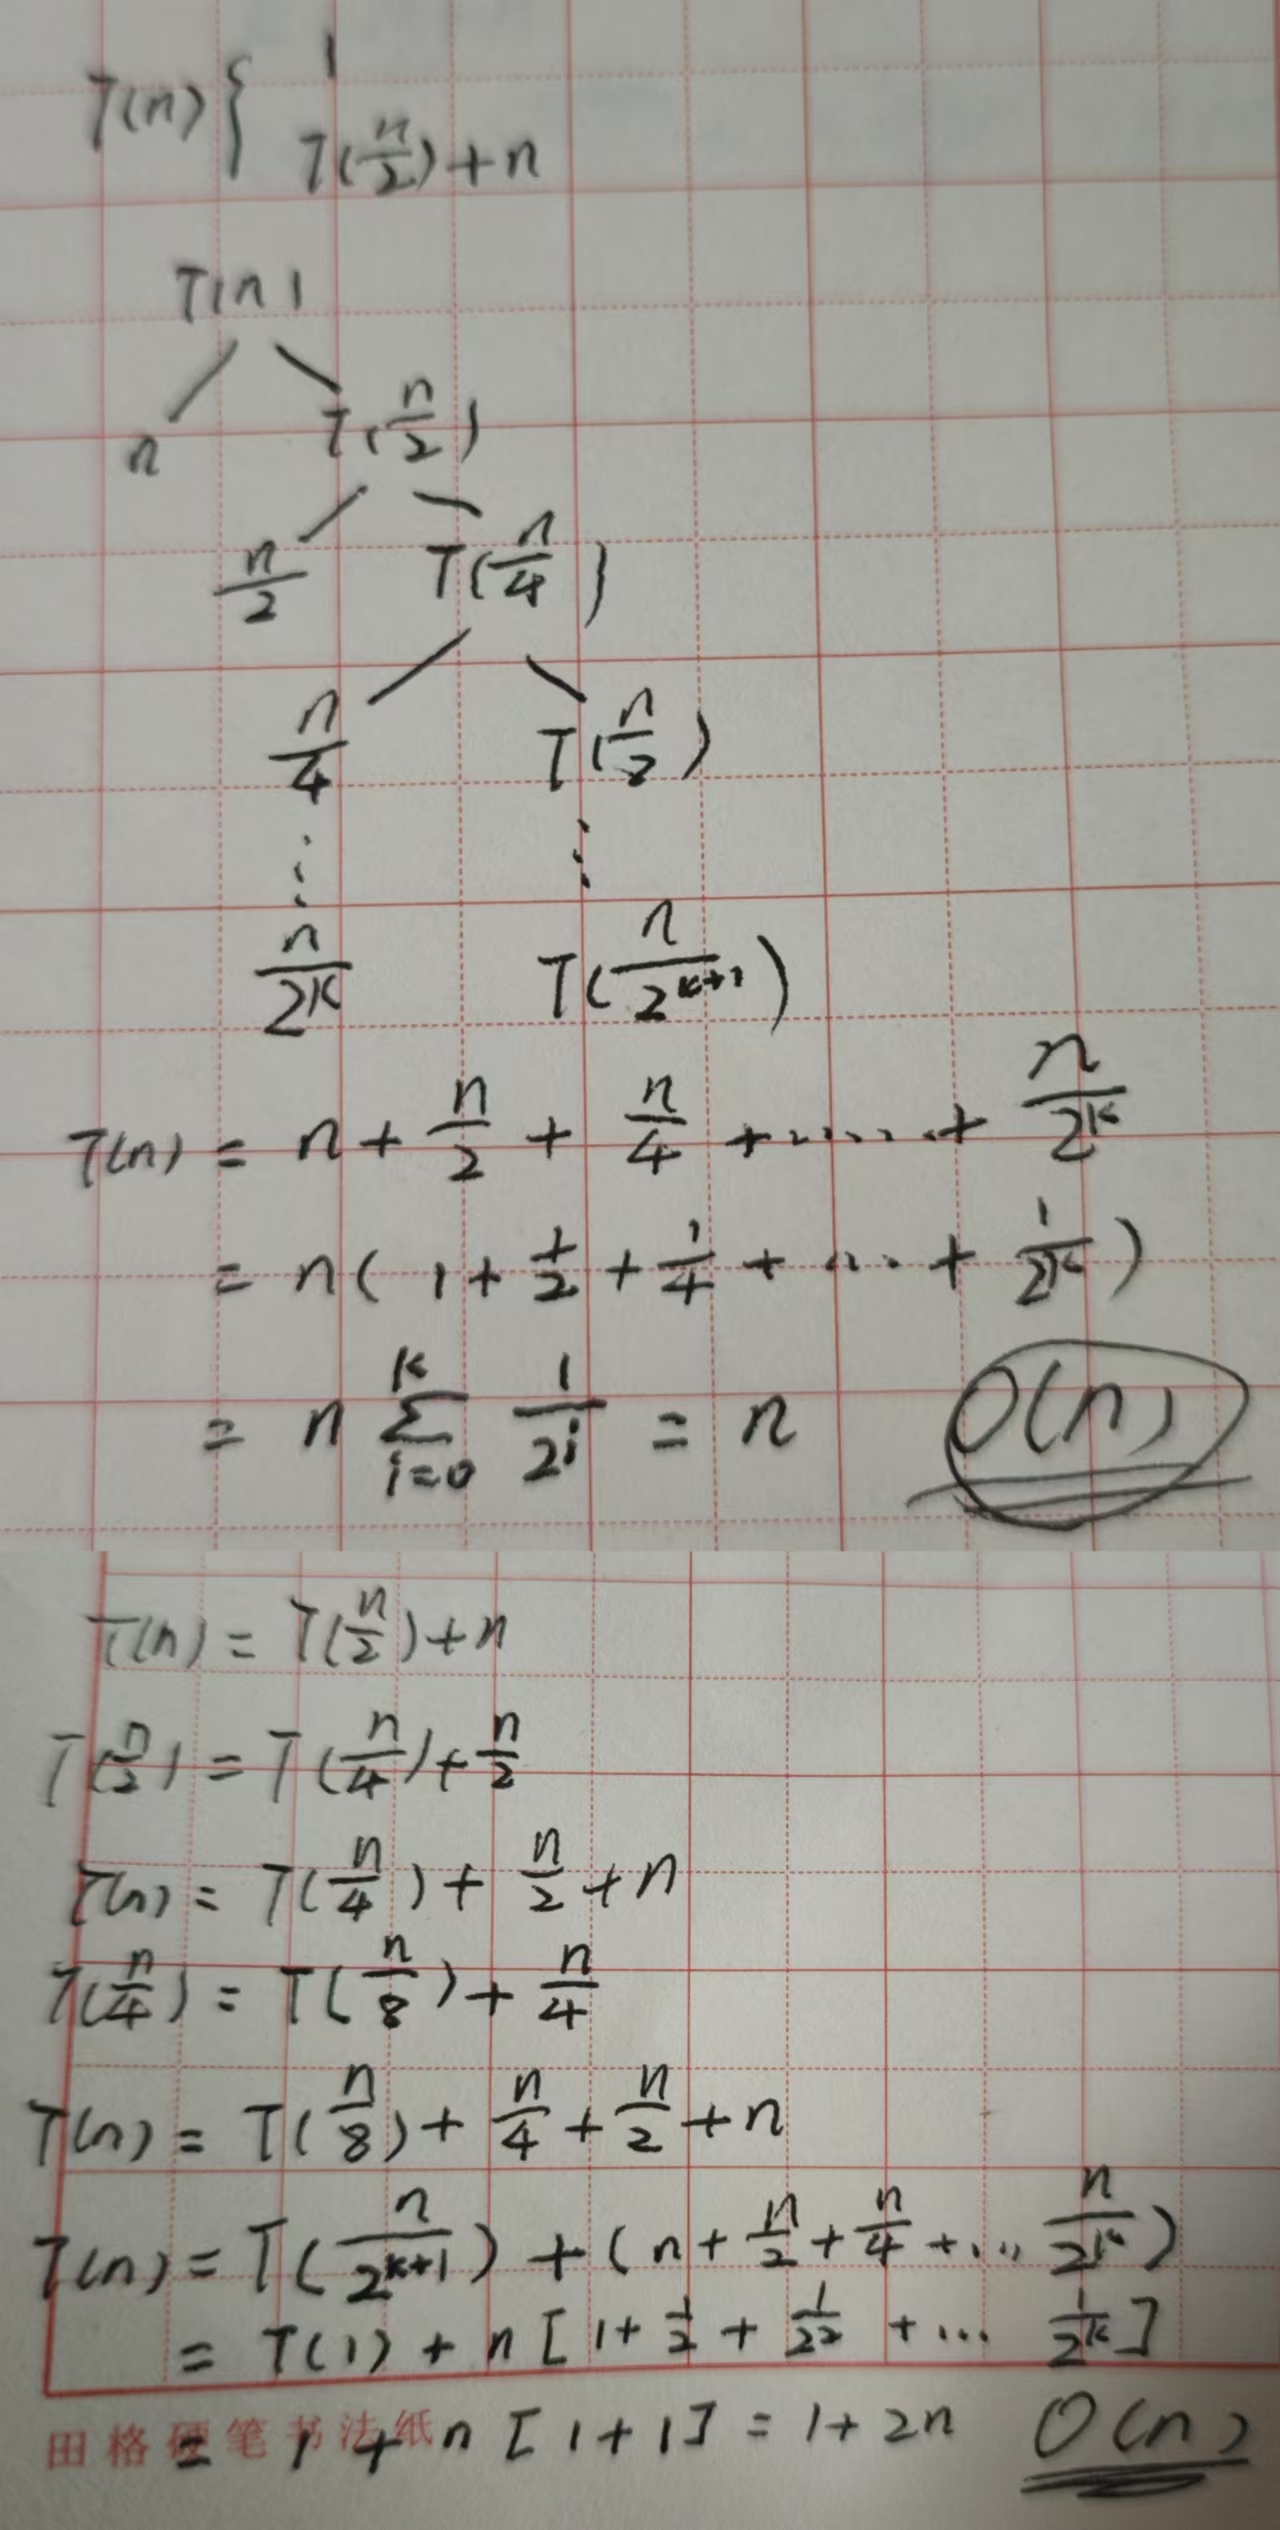 T(n) { 1
T(n/2) + n
T(n)
n T(n/2)
n/2 T(n/4)
n/4 T(n/8)
⋮ ⋮
n/2^k T(n/2^(k+1))
T(n) = n + n/2 + n/4 + ..... + n/2^k
= n ( 1 + 1/2 + 1/4 + ... + 1/2^k )
= n ∑_{i=0}^{k} 1/2^i = n O(n)
T(n) = T(n/2) + n
T(n/2) = T(n/4) + n/2
T(n) = T(n/4) + n/2 + n
T(n/4) = T(n/8) + n/4
T(n) = T(n/8) + n/4 + n/2 + n
T(n) = T(n/2^(k+1)) + (n + n/2 + n/4 + ... n/2^k)
= T(1) + n [ 1 + 1/2 + 1/2^2 + ... 1/2^k ]
= 1 + n [ 1 + 1 ] = 1 + 2n O(n)
田格硬笔书法纸